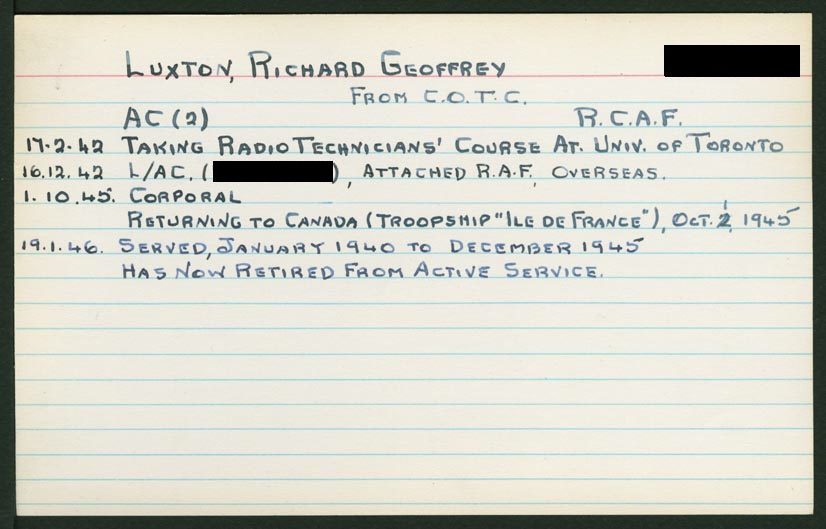 LUXTON, RICHARD GEOFFREY
FROM C.O.T.C.
AC (2) R.C.A.F.
17-2-42 TAKING RADIO TECHNICIANS' COURSE AT. UNIV. OF TORONTO
16.12.42 L/AC. ( ), ATTACHED R.A.F. OVERSEAS.
1.10.45. CORPORAL
RETURNING TO CANADA (TROOPSHIP "ILE DE FRANCE"), OCT. 1945
19.1.46. SERVED, JANUARY 1940 TO DECEMBER 1945
HAS NOW RETIRED FROM ACTIVE SERVICE.